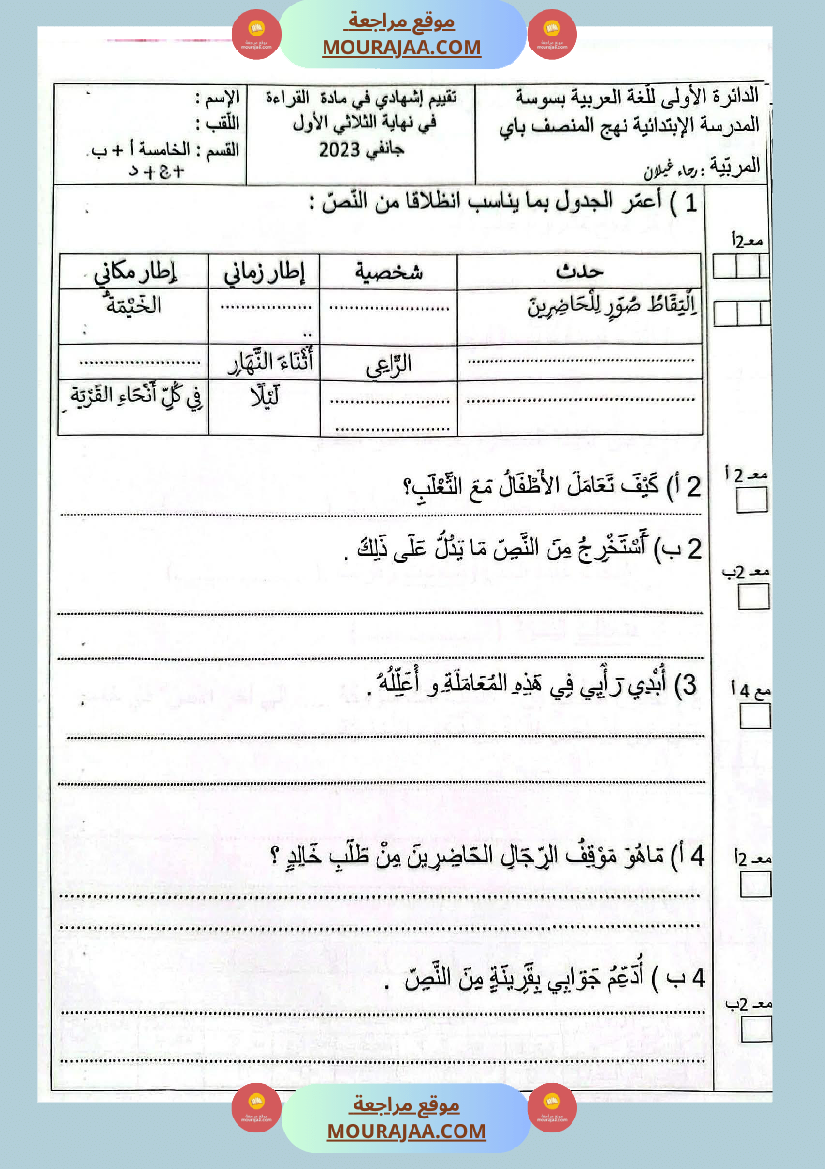 موقع مراجعة
MOURAJAA.COM
الدائرة الأولى للّغة العربية بسوسة
المدرسة الإبتدائية نهج المنصف باي
المربّية : رجاء غيلان
تقييم إشهادي في مادة القراءة
في نهاية الثلاثي الأول
جانفي 2023
الإسم :
اللّقب :
القسم : الخامسة أ + ب
+ ج + د
1 ) أعمّر الجدول بما يناسب انطلاقا من النّصّ :
معـ2أ
حدث شخصية إطار زماني إطار مكاني
اِلْتِقَاطُ صُوَرٍ لِلْحَاضِرِينَ .......................... .................... الخَيْمَةُ
.......................... الرَّاعِي أَثْنَاءَ النَّهَارِ ..........................
.......................... .......................... لَيْلًا فِي كُلِّ أَنْحَاءِ القَرْيَةِ
معـ 2 أ
2 أ) كَيْفَ تَعَامَلَ الأَطْفَالُ مَعَ الثَّعْلَبِ؟
2 ب) أَسْتَخْرِجُ مِنَ النَّصِّ مَا يَدُلُّ عَلَى ذَلِكَ .
معـ 2ب
3) أُبْدِي رَأْيِي فِي هَذِهِ المُعَامَلَةِ و أُعَلِّلُهُ .
مع 4 أ
4 أ) مَاهُوَ مَوْقِفُ الرِّجَالِ الحَاضِرِينَ مِنْ طَلَبِ خَالِدٍ ؟
معـ 2أ
4 ب ) أُدَعِّمُ جَوَابِي بِقَرِينَةٍ مِنَ النَّصِّ .
معـ 2ب
موقع مراجعة
MOURAJAA.COM